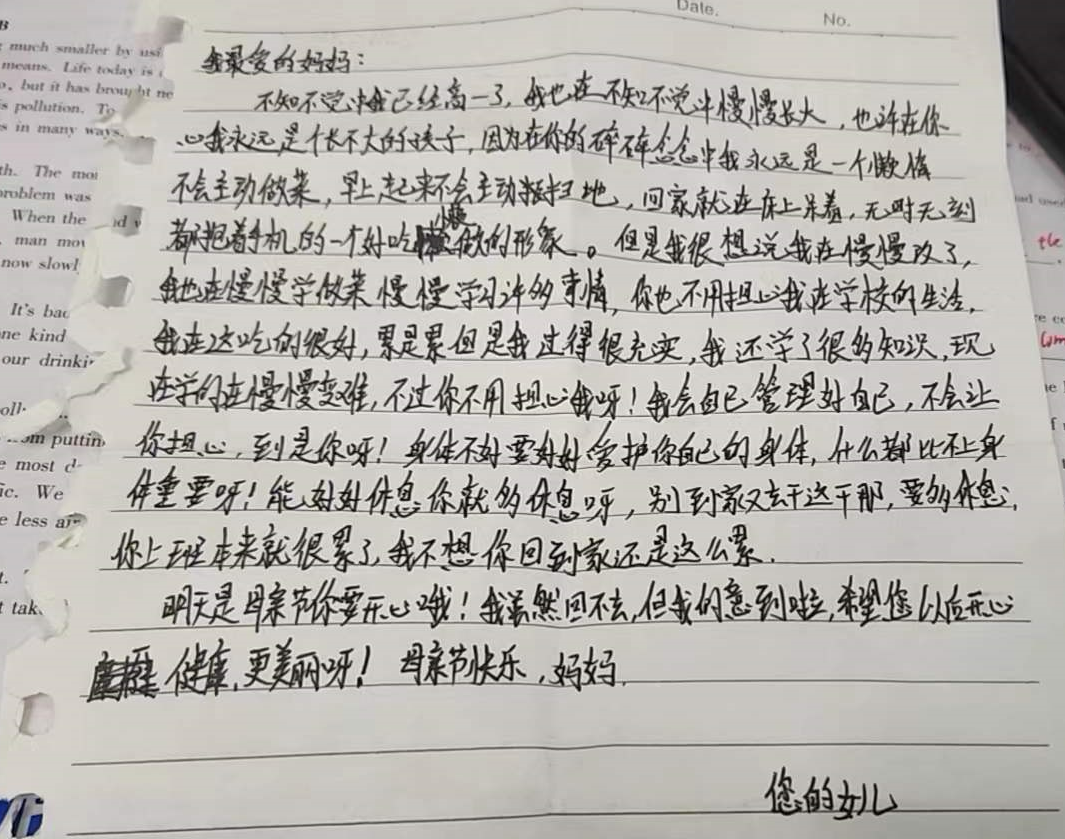 Date.
No.
我最爱的妈妈：
不知不觉中我已经高一了，我也在不知不觉中慢慢长大，也许在你
心我永远是个长不大的孩子，因为在你的碎碎念念中我永远是一个懒惰
不会主动做菜，早上起来不会主动扫地，回家就在床上呆着，无时无刻
都抱着手机的一个好吃懒做的形象。但是我很想说我在慢慢改了，
我也在慢慢学做菜慢慢学习许多事情，你也不用担心我在学校的生活，
我在这吃的很好，累是累但是我过得很充实，我还学了很多知识，现
在学的在慢慢变难，不过你不用担心我呀！我会自己管理好自己，不会让
你担心，到是你呀！身体不好要好好爱护你自己的身体，什么都比不上身
体重要呀！能好好休息你就多休息呀，别到家又去干这干那，要多休息，
你上班本来就很累了，我不想你回到家还是这么累．
明天是母亲节你要开心哦！我虽然回不去，但我的意到啦，希望您以后开心
健康，更美丽呀！母亲节快乐，妈妈．
您的女儿
B
much smaller by usi
means. Life today is
, but it has brought ne
s pollution. To
s in many ways.
th. The mo
roblem was
When the
man mov
now slowl
It's bad
ne kind
our drinki
m puttin
e most d
ic. We
e less ar
t tak
the